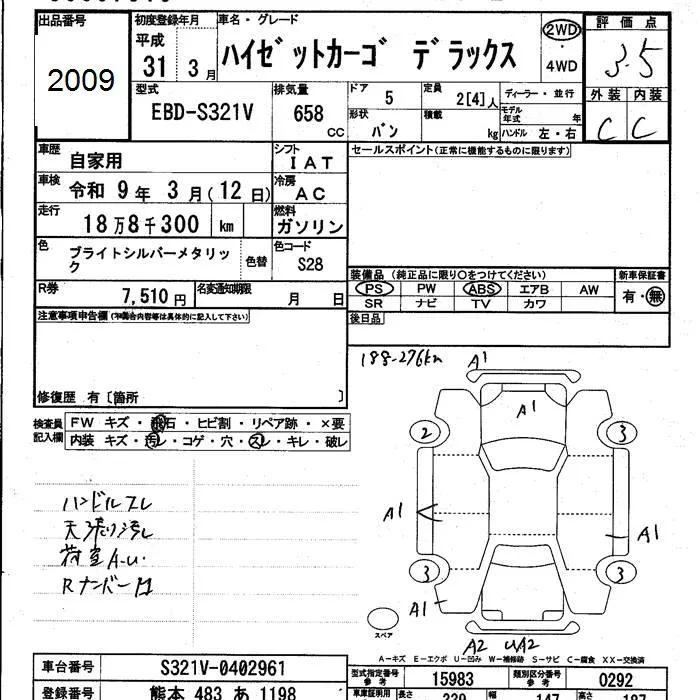 出品番号
2009
初度登録年月
平成
31 3月
車名・グレード
ハイゼットカーゴ デラックス
2WD
・
4WD
評価点
3.5
外装 内装
C C
型式
EBD-S321V
排気量
658
CC
ドア
5
定員
2[4]人
ディーラー・並行
モデル年式 年
形状
バン
積載
kg
ハンドル 左・右
車歴
自家用
シフト
IAT
セールスポイント(正常に機能するものに限ります)
車検
令和 9年 3月(12日)
冷房
AC
走行
18万8千300 km
燃料
ガソリン
色
ブライトシルバーメタリック
色替
色コード
S28
R券
7,510円
名変通知期限
月 日
装備品 (純正品に限り○をつけてください)
PS PW ABS エアB AW
SR ナビ TV カワ
新車保証書
有・無
後日品
注意事項申告欄(不具合内容等は具体的に記入して下さい)
修復歴 有〔箇所 〕
検査員
記入欄
FW キズ・飛石・ヒビ割・リペア跡・×要
内装 キズ・汚レ・コゲ・穴・スレ・キレ・破レ
188-276km
A1
A1
2
3
A1
A1
3
3
A1
A2 UA2
スペア
ハンドルスレ
天張り汚レ
荷室A・U・
Rナンバー凹
A−キズ E−エクボ U−凹み W−補修跡 S−サビ C−腐食 XX−交換済
車台番号
S321V-0402961
型式指定番号
参考
15983
類別区分番号
参考
0292
登録番号
熊本 483 あ 1198
車車証明用
長さ
339
幅
147
高さ
187